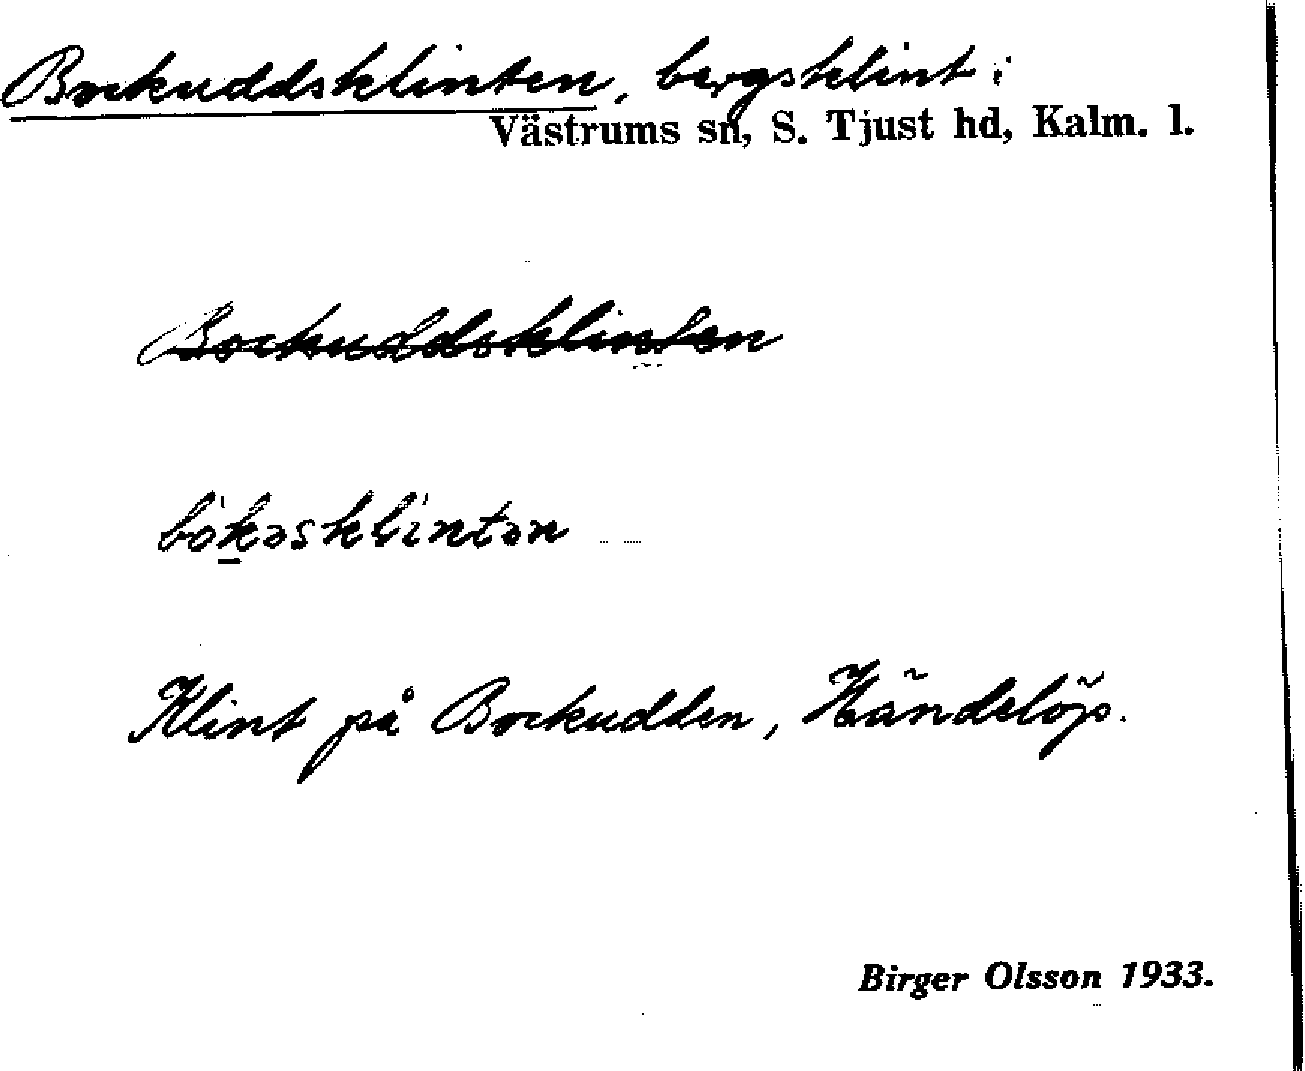 Bockuddsklinten, bergsklint i
Västrums sn, S. Tjust hd, Kalm. l.
Bockuddsklinten
Klint på Bockudden, Händelöp.
Birger Olsson 1933.